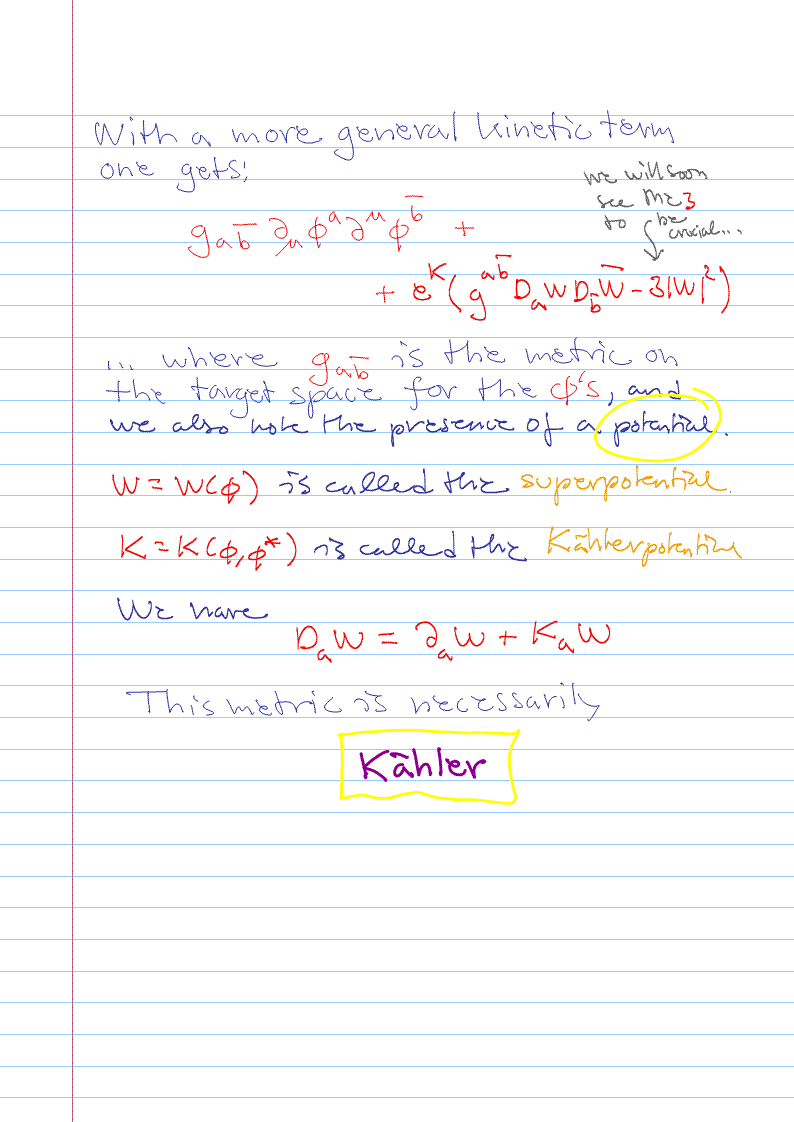 With a more general kinetic term
one gets:
we will soon
see the 3
to be
crucial...
g_{a\bar{b}} ∂_μ φ^a ∂^μ φ^{\bar{b}} +
+ e^K (g^{a\bar{b}} D_a W D_{\bar{b}} \bar{W} - 3|W|^2)
... where g_{a\bar{b}} is the metric on
the target space for the φ's, and
we also note the presence of a potential.
W = W(φ) is called the superpotential.
K = K(φ,φ*) is called the Kählerpotential
We have
D_a W = ∂_a W + K_a W
This metric is necessarily
Kähler